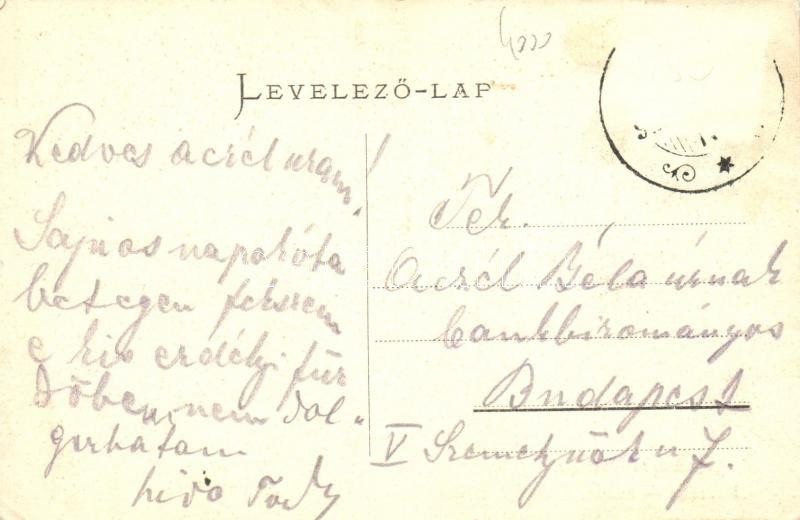 4000
LEVELEZŐ-LAP
Kedves aczél uram!
Sajnos napok óta
betegen fekszem
e kis erdélyi für
dőben, nem dol-
gozhatom
hívo
Tek.
Aczél Béla úrnak
bankbizományos
Budapest
V Szemelynök u 7.